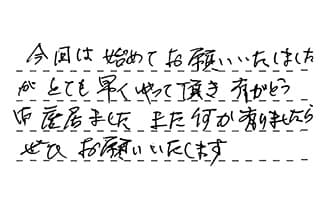 今回は始めてお願いいたしました
がとても早くやって頂き有がとう
座居ました また何か有りましたら
ぜひお願いいたします